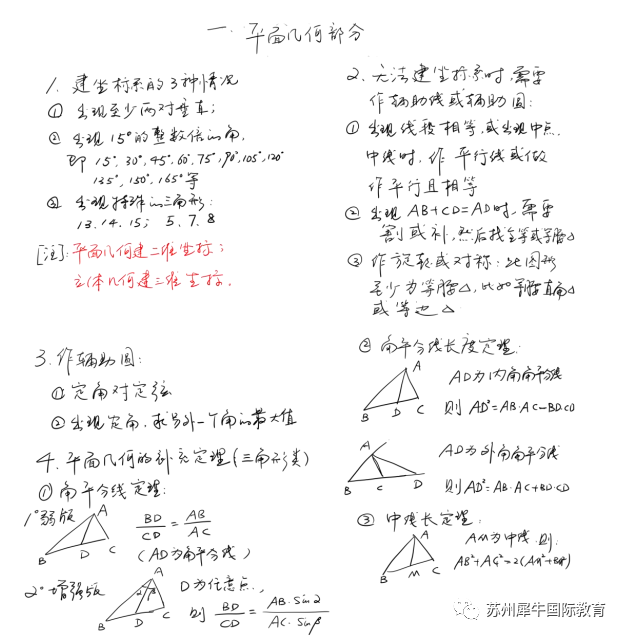 一. 平面几何部分
1. 建坐标系的3种情况
① 出现至少两对垂直；
② 出现15°的整数倍的角,
即 15°, 30°, 45°, 60°, 75°, 90°, 105°, 120°
135°, 150°, 165° 等
③ 出现特殊的三角形:
13. 14. 15; 5. 7. 8
[注]: 平面几何建二维坐标；
立体几何建三维坐标.
2. 无法建坐标系时, 需要
作辅助线或辅助圆:
① 出现线段相等, 或出现中点.
中线时, 作平行线或做
作平行且相等
② 出现 AB+CD=AD时, 需要
割或补, 然后找全等或等腰△
③ 作旋转或对称: 此图形
至少为等腰△, 比如等腰直角△
或等边△
3. 作辅助圆:
① 定角对定弦
② 出现定角, 求另外一个角的最大值
4. 平面几何的补充定理(三角形类)
① 角平分线定理:
1° 弱版
A
B
D
C
BD/CD = AB/AC
(AD为角平分线)
2° 增强版
A
α
β
B
D
C
D为任意点,
则 BD/CD = AB·Sinα/AC·Sinβ
② 角平分线长度定理:
A
B
D
C
AD为内角角平分线
则 AD²=AB·AC-BD·CD
A
B
C
D
AD为外角角平分线
则 AD²=AB·AC+BD·CD
③ 中线长定理:
A
B
M
C
AM为中线, 则:
AB²+AC²=2(AM²+BM²)
苏州犀牛国际教育